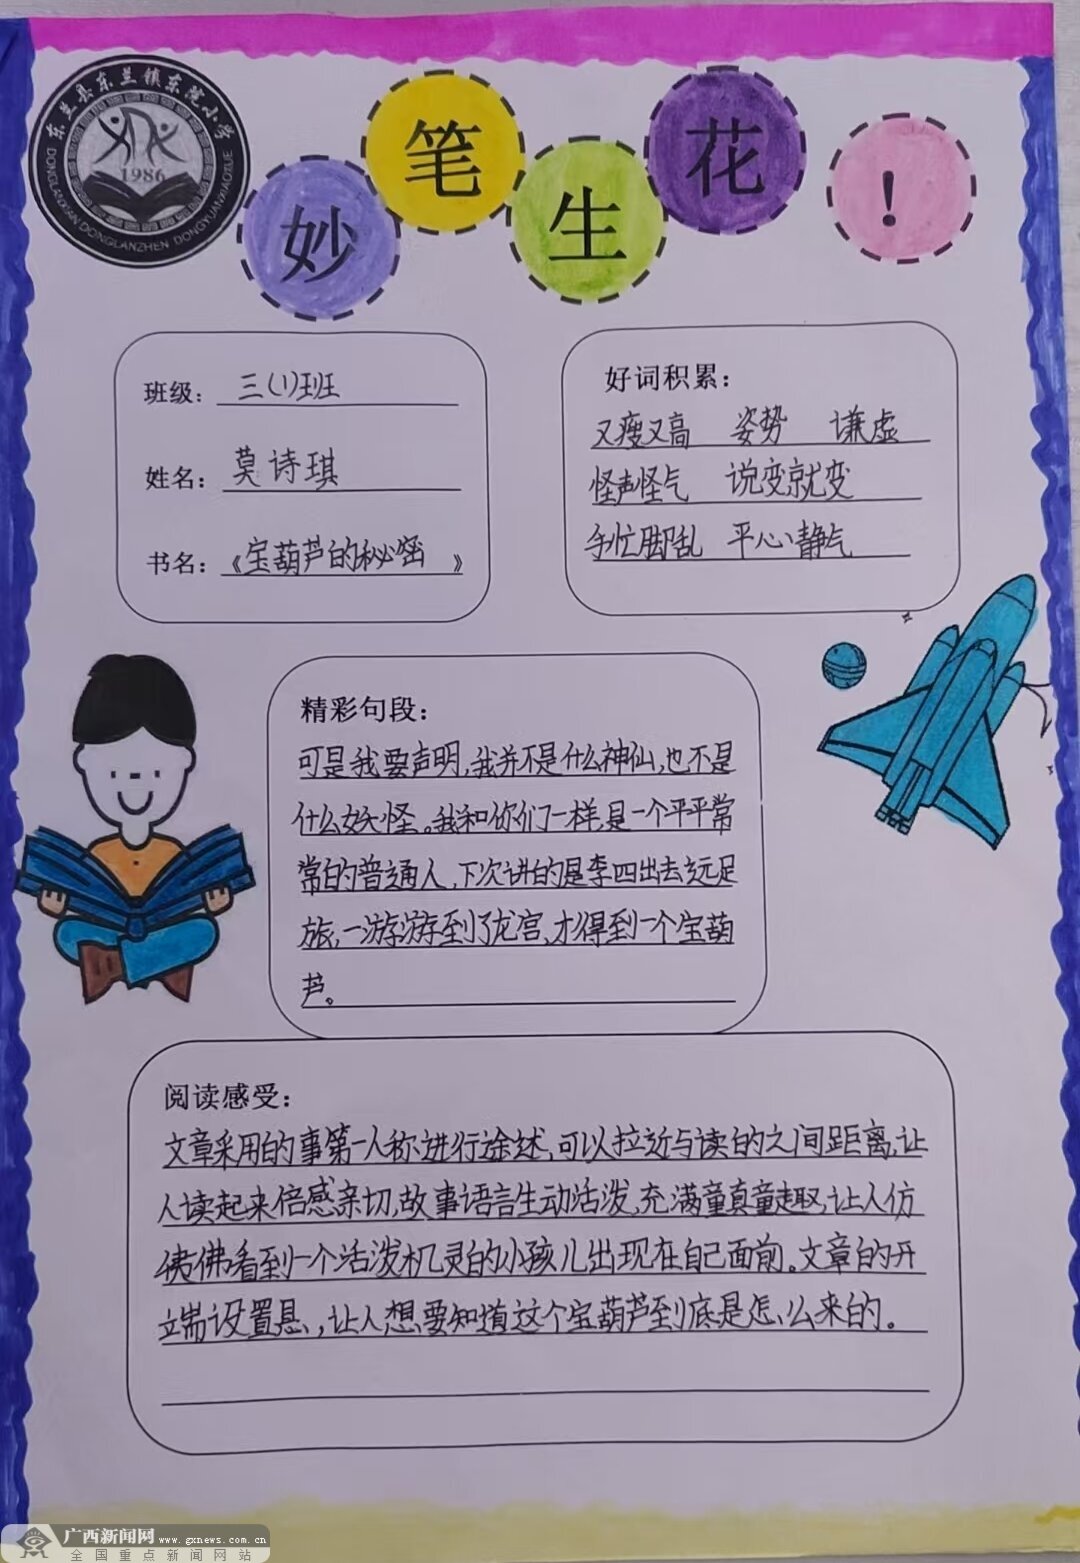 东兰县东兰镇东院小学
1986
DONGLANXIAN DONGLANZHEN DONGYUANXIAOXUE
妙笔生花!
班级: 三(1)班
姓名: 莫诗琪
书名:《宝葫芦的秘密》
好词积累:
又瘦又高 姿势 谦虚
怪声怪气 说变就变
手忙脚乱 平心静气
精彩句段:
可是我要声明,我并不是什么神仙,也不是
什么妖怪。我和你们一样,是一个平平常
常的普通人,下次讲的是李四出去远足
旅,一游游到了龙宫,才得到一个宝葫
芦。
阅读感受:
文章采用的事第一人称进行途述,可以拉近与读的之间距离,让
人读起来倍感亲切,故事语言生动活泼,充满童真童趣,让人仿
佛佛看到一个活泼机灵的小孩儿出现在自己面前。文章的开
端设置悬,让人想要知道这个宝葫芦到底是怎么来的。
广西新闻网 www.gxnews.com.cn
全国重点新闻网站